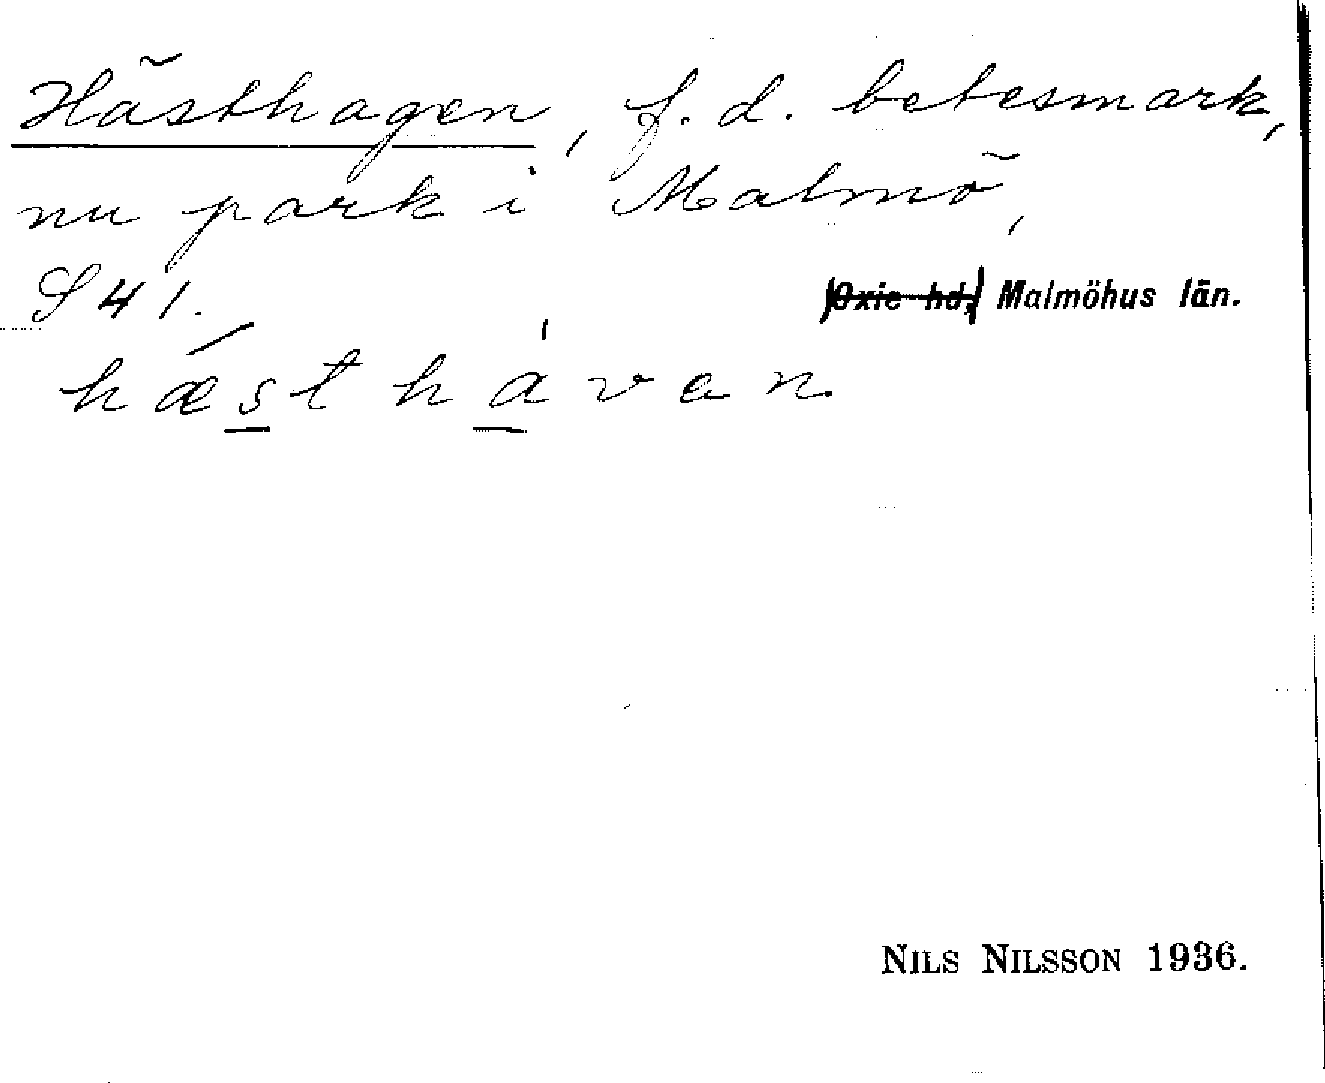 Hästhagen, f. d. betesmark,
nu park i Malmö,
S 41. Oxie hd, Malmöhus län.
hæst havan
NILS NILSSON 1936.